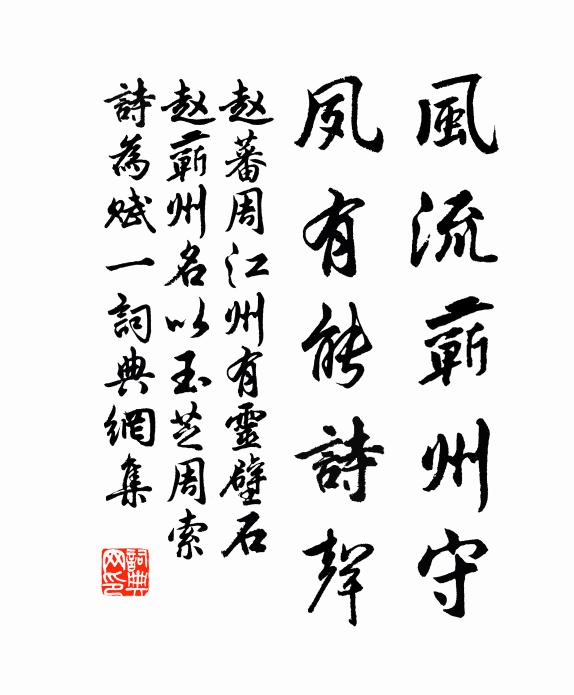 風流蘄州守
夙有能詩聲
趙蕃周江州有靈壁石
趙蘄州名以玉芝周索
詩為賦一詞典網集
詞典網印